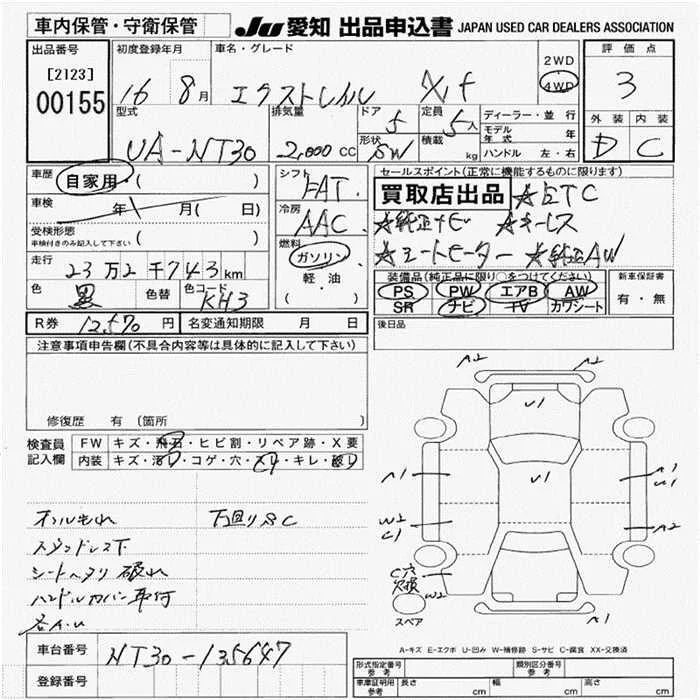 車内保管・守衛保管
JU 愛知 出品申込書 JAPAN USED CAR DEALERS ASSOCIATION
出品番号
[2123]
00155
初度登録年月
16 8月
車名・グレード
エクストレイル X,f
2WD
4WD
評価点
3
型式
UA-NT30
排気量
2,000 cc
ドア 5
形状 SW
定員 5人
積載 kg
ディーラー・並行
モデル年式 年
ハンドル 左・右
外装 内装
D C
車歴 自家用・( )
車検 年 月( 日)
受検形態
車検付きのみ記入して下さい ( )
走行
23万2千743km
色 黒 色替 色コード KH3
シフト
FAT
冷房
AAC
燃料
ガソリン
軽・油
( )
セールスポイント(正常に機能するものに限ります)
買取店出品 ☆ETC
☆純正ナビ ☆キーレス
☆シートヒーター ☆純正AW
装備品(純正品に限り○をつけてください)
PS PW エアB AW
SR ナビ TV カワシート
新車保証書
有・無
R券 12,570円 名変通知期限 月 日
後日品
注意事項申告欄(不具合内容等は具体的に記入して下さい)
修復歴 有 〔箇所 〕
検査員記入欄
FW キズ・飛石・ヒビ割・リペア跡・X要
内装 キズ・汚レ・コゲ・穴・スレ・キレ・破レ
オイルもれ 下回りSC
シートヘタリ 破れ
ハンドルカバー取付
各A.U
A2 A2
U1
A1
U1
A1
U1
W2
C1
A2
C穴
欠損
W2
スペア
A1
A-キズ E-エクボ U-凹み W-補修跡 S-サビ C-腐食 XX-交換済
車台番号 NT30-135647
登録番号
形式指定番号 参考
類別区分番号 参考
車庫証明用 参考
長さ cm 幅 cm 高さ cm